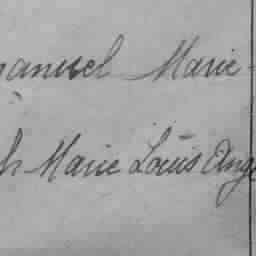 anuel Marie-
h Marie Louis Ange